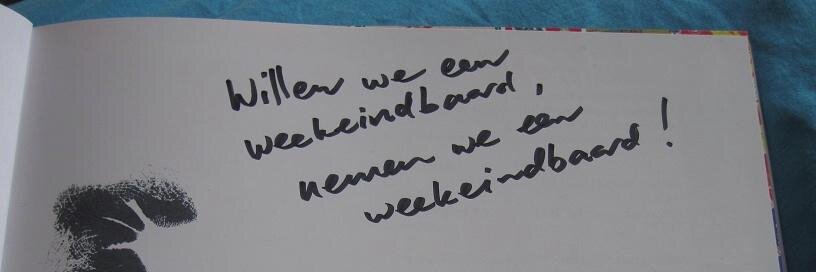 Willen we een
weekeindbaard,
nemen we een
weekeindbaard!